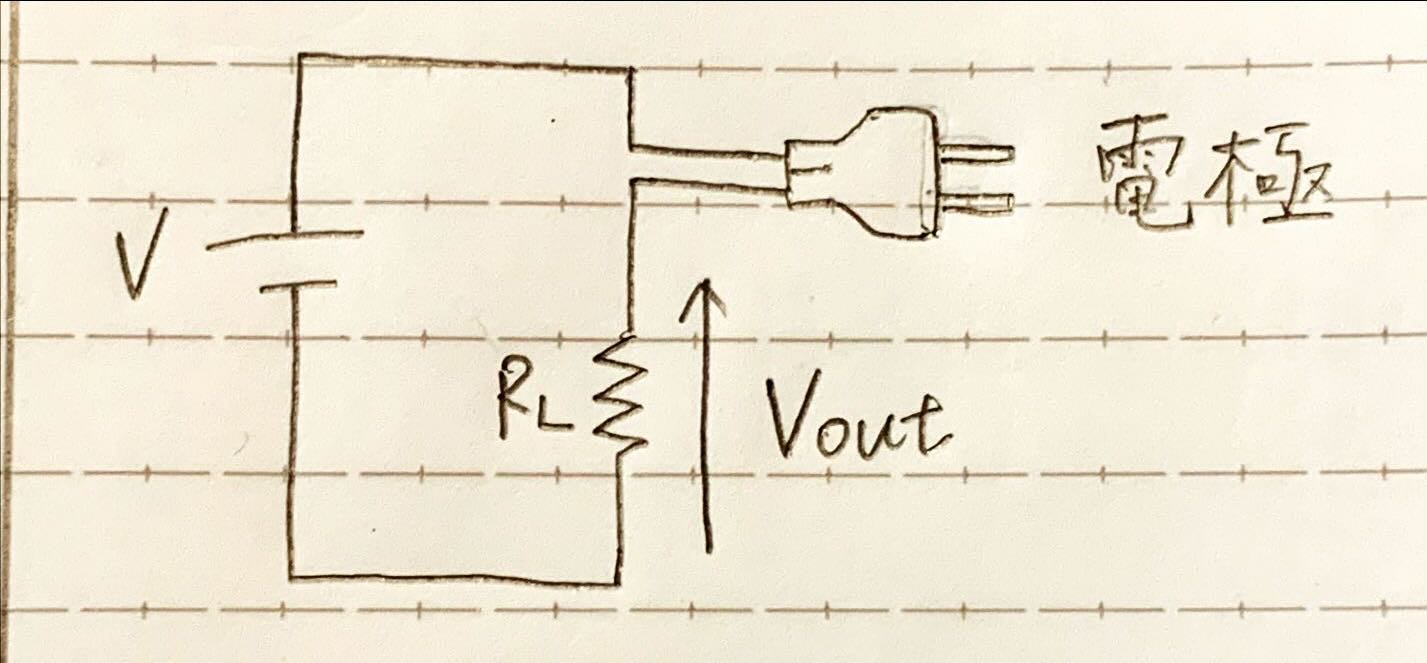 電極
V
RL
Vout